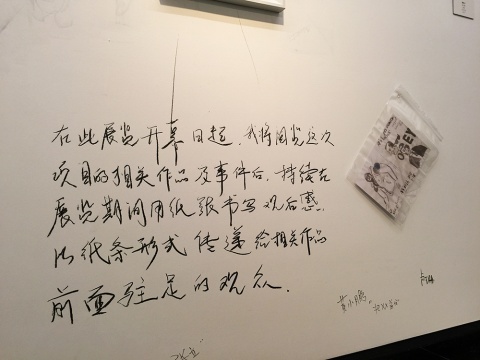 在此展览开幕日起，我将围览这次
项目的相关作品及事件后，持续在
展览期间用纸张书写观后感，
以纸条形式传递给相关作品
前面驻足的观众.
OBEY
黄小鹏